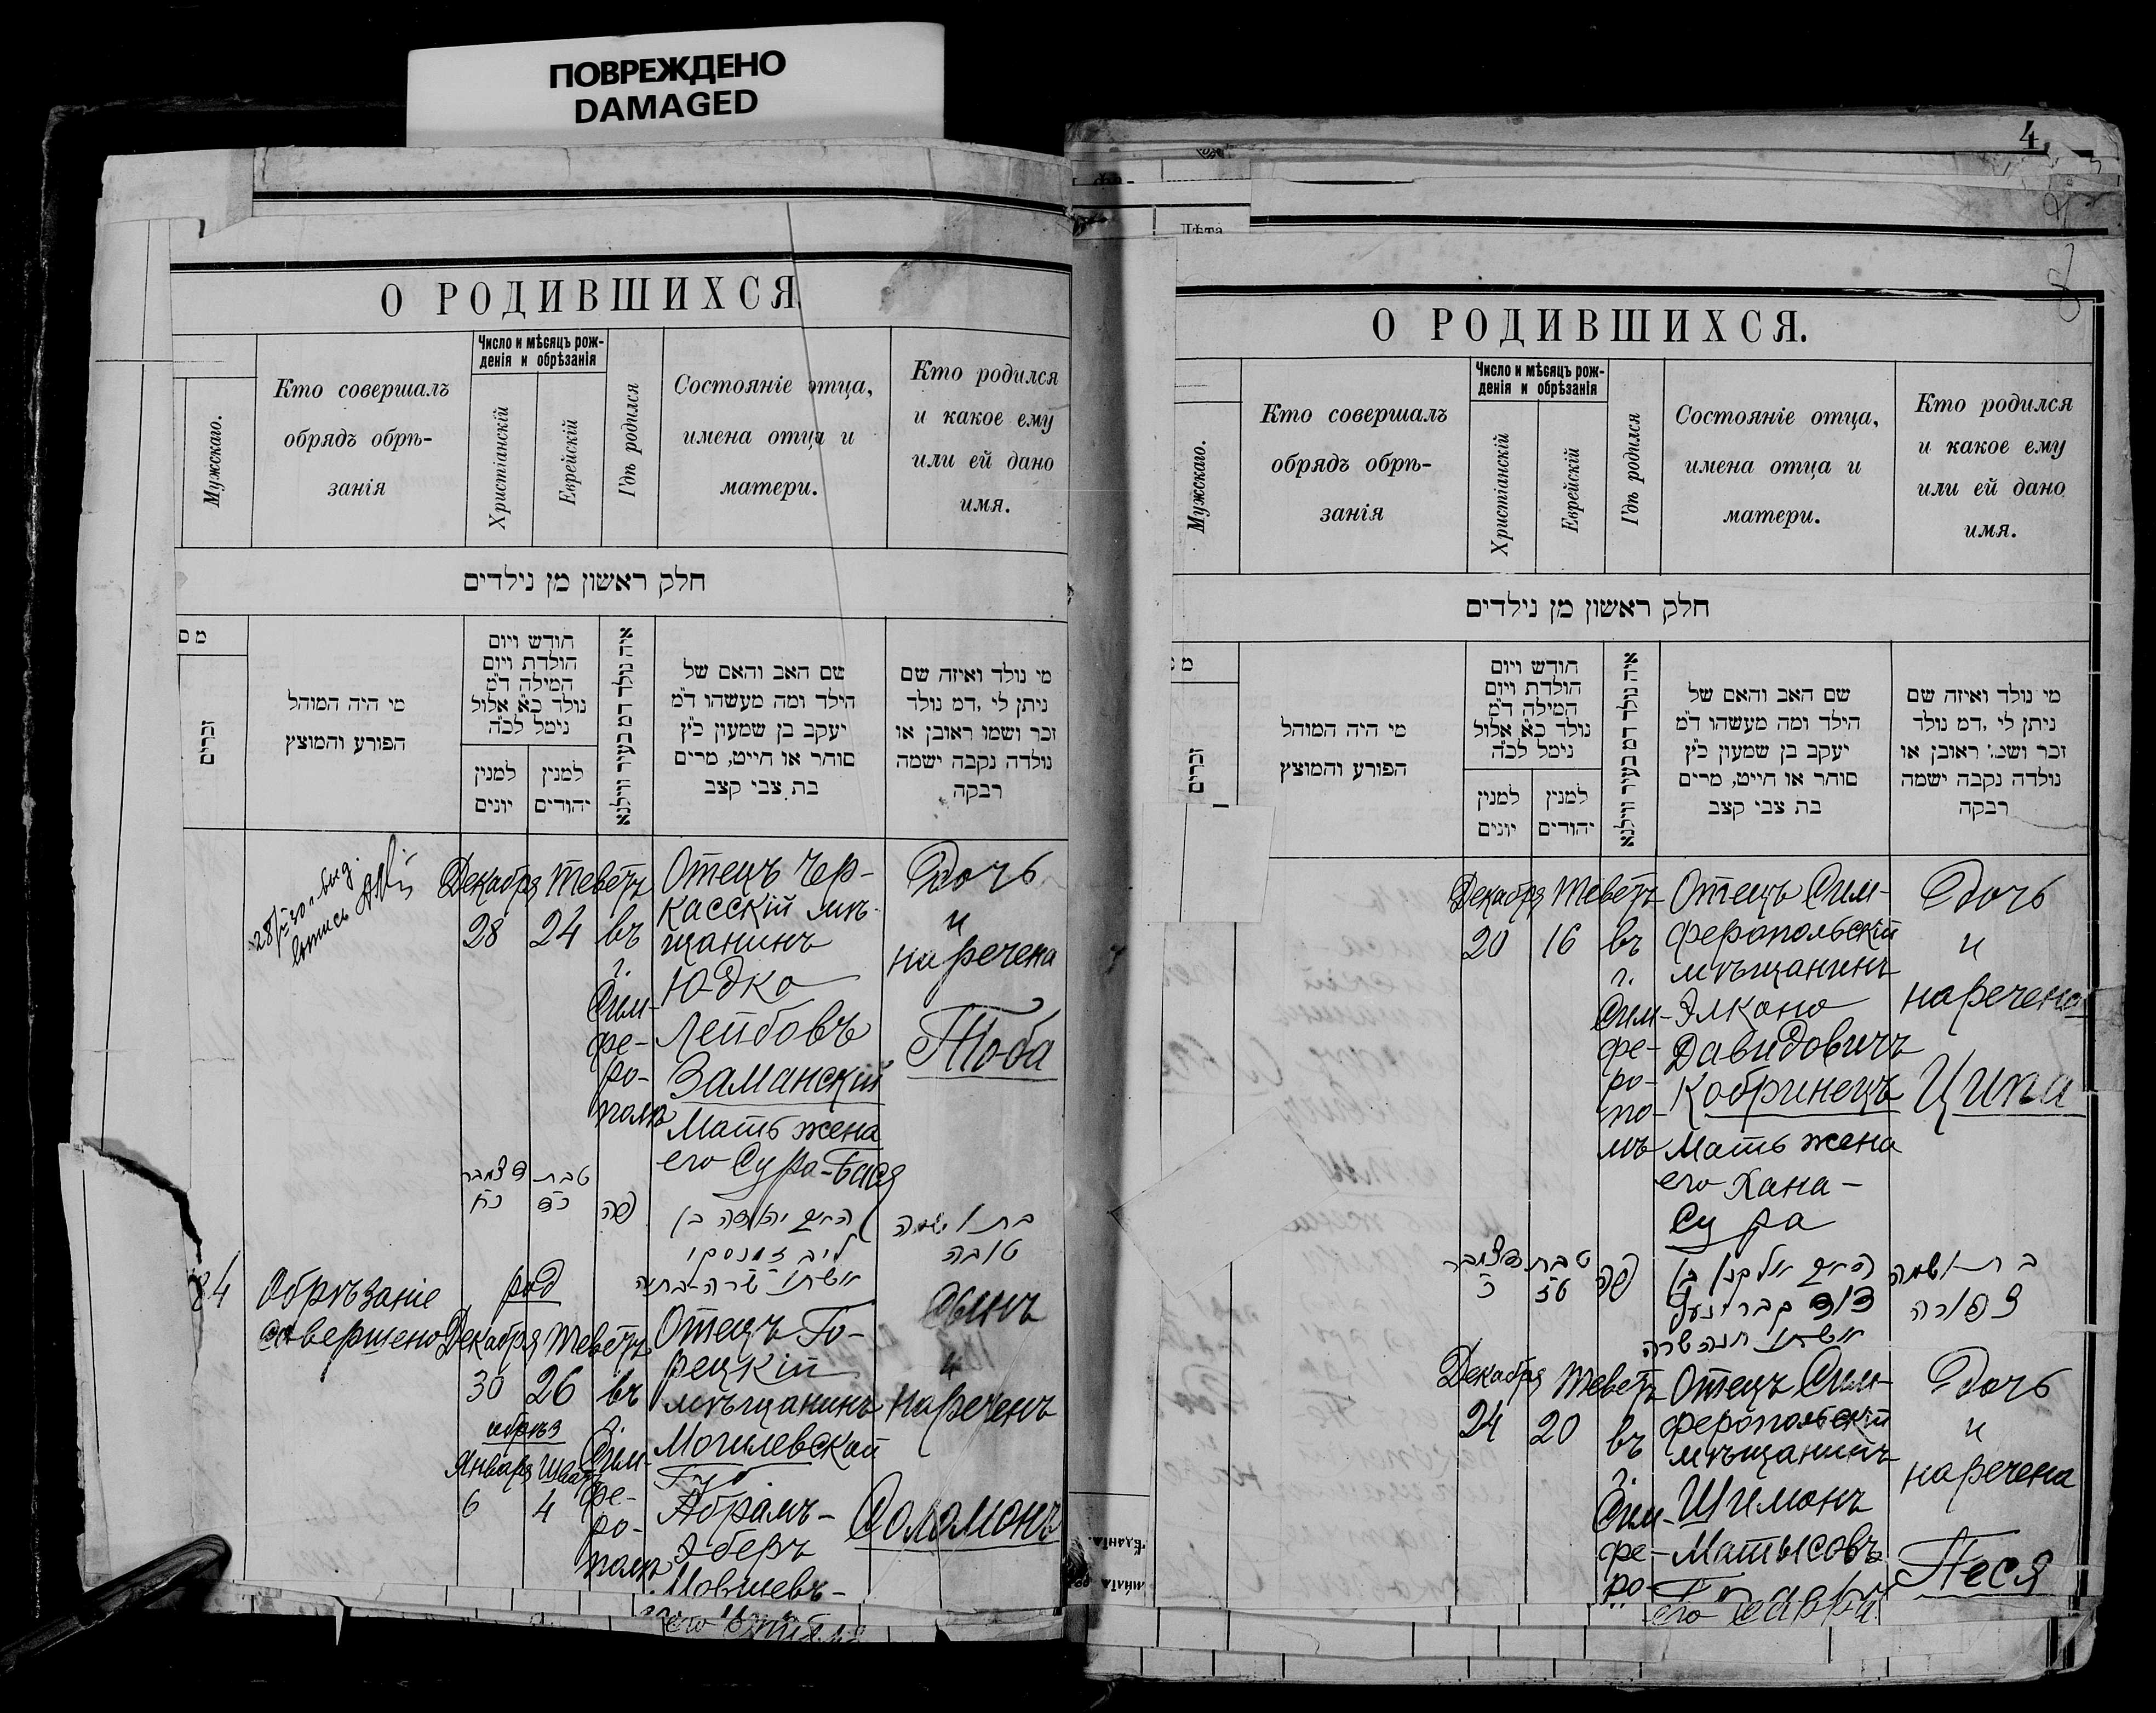 ПОВРЕЖДЕНО
DAMAGED
О РОДИВШИХСЯ
Мужскаго.
Кто совершалъ
обрядъ обрѣ-
занія
Число и мѣсяцъ рож-
денія и обрѣзанія
Христіанскій
Еврейскій
Гдѣ родился
Состояніе отца,
имена отца и
матери.
Кто родился
и какое ему
или ей дано
имя.
חלק ראשון מן נילדים
זכרים
מי היה המוהל
הפורע והמוצץ
חודש ויום
הולדת ויום
המילה ד״מ
נולד כ״א אלול
נימל לכ״ה
למנין
יונים
למנין
יהודים
איה נולד דמ בעיר ווילנא
שם האב והאם של
הילד ומה מעשהו ד״מ
יעקב בן שמעון כ״ץ
סוחר או חייט, מרים
בת צבי קצב
מי נולד ואיזה שם
ניתן לי ,דמ נולד
זכר ושמו ראובן או
נולדה נקבה ישמה
רבקה
Декабря
28
Теветъ
24
въ
г.
Сим-
фе-
ро-
полѣ
Отецъ Чер-
касскій мѣ-
щанинъ
Юдко
Лейбовъ
Заманскій
Мать жена
его Сура-Бася
Дочь
и
наречена
Тоба
דצמבר
כח
טבת
כד
פה
האיש יהודה בן
ליב זמנסקי
אשתו שרה-בתיה
בת ושמה
טובה
84
Обрѣзаніе
совершено
род
Декабря
30
Теветъ
26
обрѣз
Января
6
Шватъ
4
въ
г.
Сим-
фе-
ро-
полѣ
Отецъ Го-
рецкій
мѣщанинъ
Могилевской
Гу
Абрамъ-
Эберъ
Мовшевъ-
Сынъ
и
нареченъ
Соломонъ
4
8
О РОДИВШИХСЯ.
Лѣта
Мужскаго.
Кто совершалъ
обрядъ обрѣ-
занія
Число и мѣсяцъ рож-
денія и обрѣзанія
Христіанскій
Еврейскій
Гдѣ родился
Состояніе отца,
имена отца и
матери.
Кто родился
и какое ему
или ей дано
имя.
חלק ראשון מן נילדים
זכרים
מי היה המוהל
הפורע והמוצץ
חודש ויום
הולדת ויום
המילה ד״מ
נולד כ״א אלול
נימל לכ״ה
למנין
יונים
למנין
יהודים
איה נולד דמ בעיר ווילנא
שם האב והאם של
הילד ומה מעשהו ד״מ
יעקב בן שמעון כ״ץ
סוחר או חייט, מרים
בת צבי קצב
מי נולד ואיזה שם
ניתן לי ,דמ נולד
זכר ושמ. ראובן או
נולדה נקבה ישמה
רבקה
Декабря
20
Теветъ
16
въ
г.
Сим-
фе-
ро-
по-
лѣ
Отецъ Сим-
феропольскій
мѣщанинъ
Элконо
Давидовичъ
Кобринецъ
Мать жена
его Хана-
Сура
Дочь
и
наречена
Ципа
דצמבר
כ
טבת
טז
פה
האיש אלקנן בן
דוד קברינעץ
אשתו חנה שרה
בת ושמה
צפורה
Декабря
24
Теветъ
20
въ
г.
Сим-
фе-
ро-
Отецъ Сим-
феропольскій
мѣщанинъ
Шимонъ
Матысовъ
Дочь
и
наречена
Песя